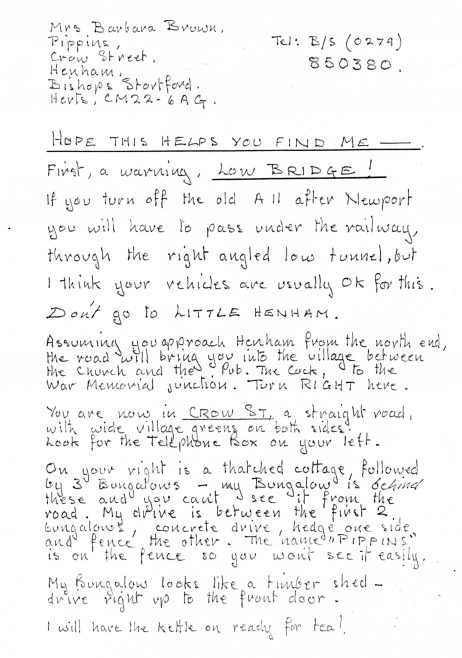 Mrs Barbara Brown,
Pippins,
Crow Street,
Henham,
Bishops Stortford.
Herts, CM22-6AG.
Tel: B/S (0279)
850380.
HOPE THIS HELPS YOU FIND ME —.
First, a warning, LOW BRIDGE!
If you turn off the old A11 after Newport
you will have to pass under the railway,
through the right angled low tunnel, but
I think your vehicles are usually OK for this.
Don't go to LITTLE HENHAM.
Assuming you approach Henham from the north end,
the road will bring you into the village between
the Church and the Pub. The Cock, to the
War Memorial junction. Turn RIGHT here.
You are now in CROW ST, a straight road,
with wide village greens on both sides.
Look for the Telephone Box on your left.
On your right is a thatched cottage, followed
by 3 Bungalows – my Bungalow is behind
these and you can't see it from the
road. My drive is between the first 2
bungalows, concrete drive, hedge one side
and fence the other. The name "PIPPINS"
is on the fence so you won't see it easily.
My Bungalow looks like a timber shed –
drive right up to the front door.
I will have the kettle on ready for tea!